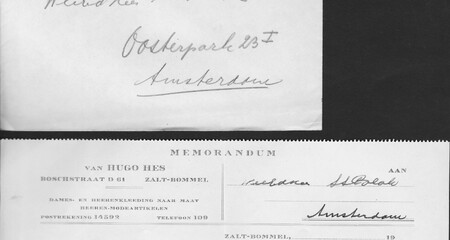 Oosterpark 23 I
Amsterdam
MEMORANDUM
VAN HUGO HES
BOSCHSTRAAT D 61 ZALT-BOMMEL
DAMES- EN HEERENKLEEDING NAAR MAAT
HEEREN-MODEARTIKELEN
POSTREKENING 14592 TELEFOON 100
AAN
Amsterdam
ZALT-BOMMEL, 19